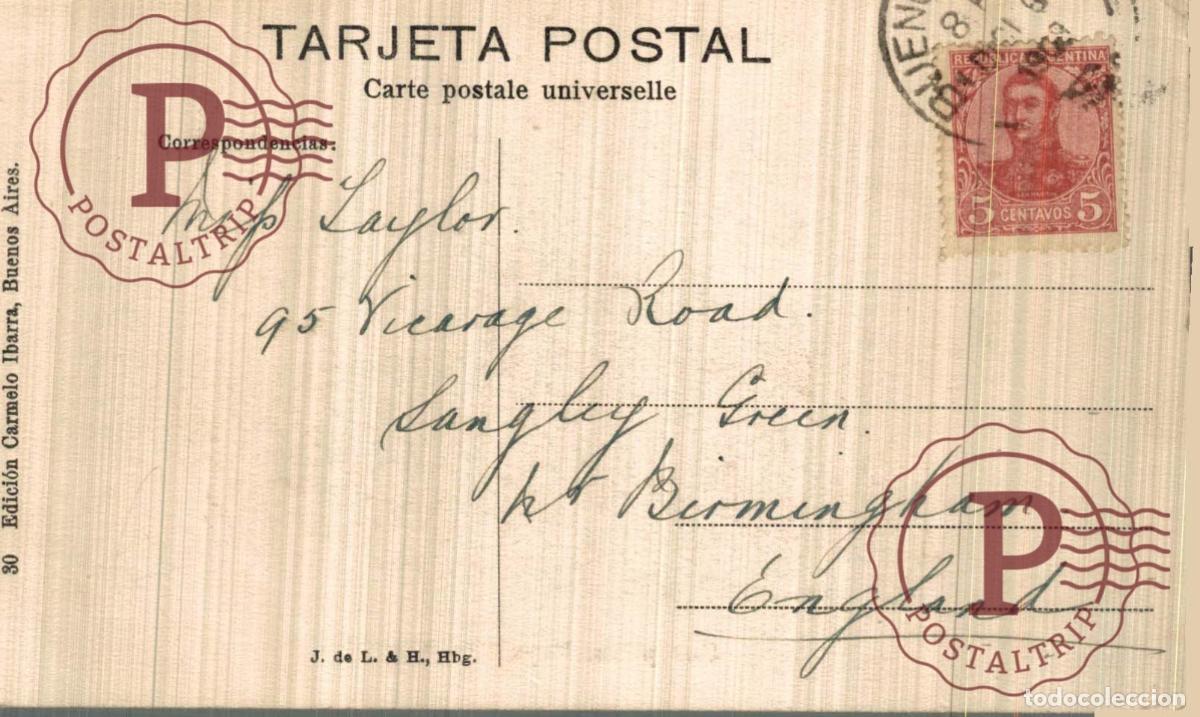 TARJETA POSTAL
Carte postale universelle
Correspondencias:
Miss Taylor.
95 Vicarage Road.
Langley Green.
nr Birmingham
England
30 Edición Carmelo Ibarra, Buenos Aires.
J. de L. & H., Hbg.
REPUBLICA ARGENTINA
5 CENTAVOS 5
P
POSTALTRIP
P
POSTALTRIP
todocoleccion